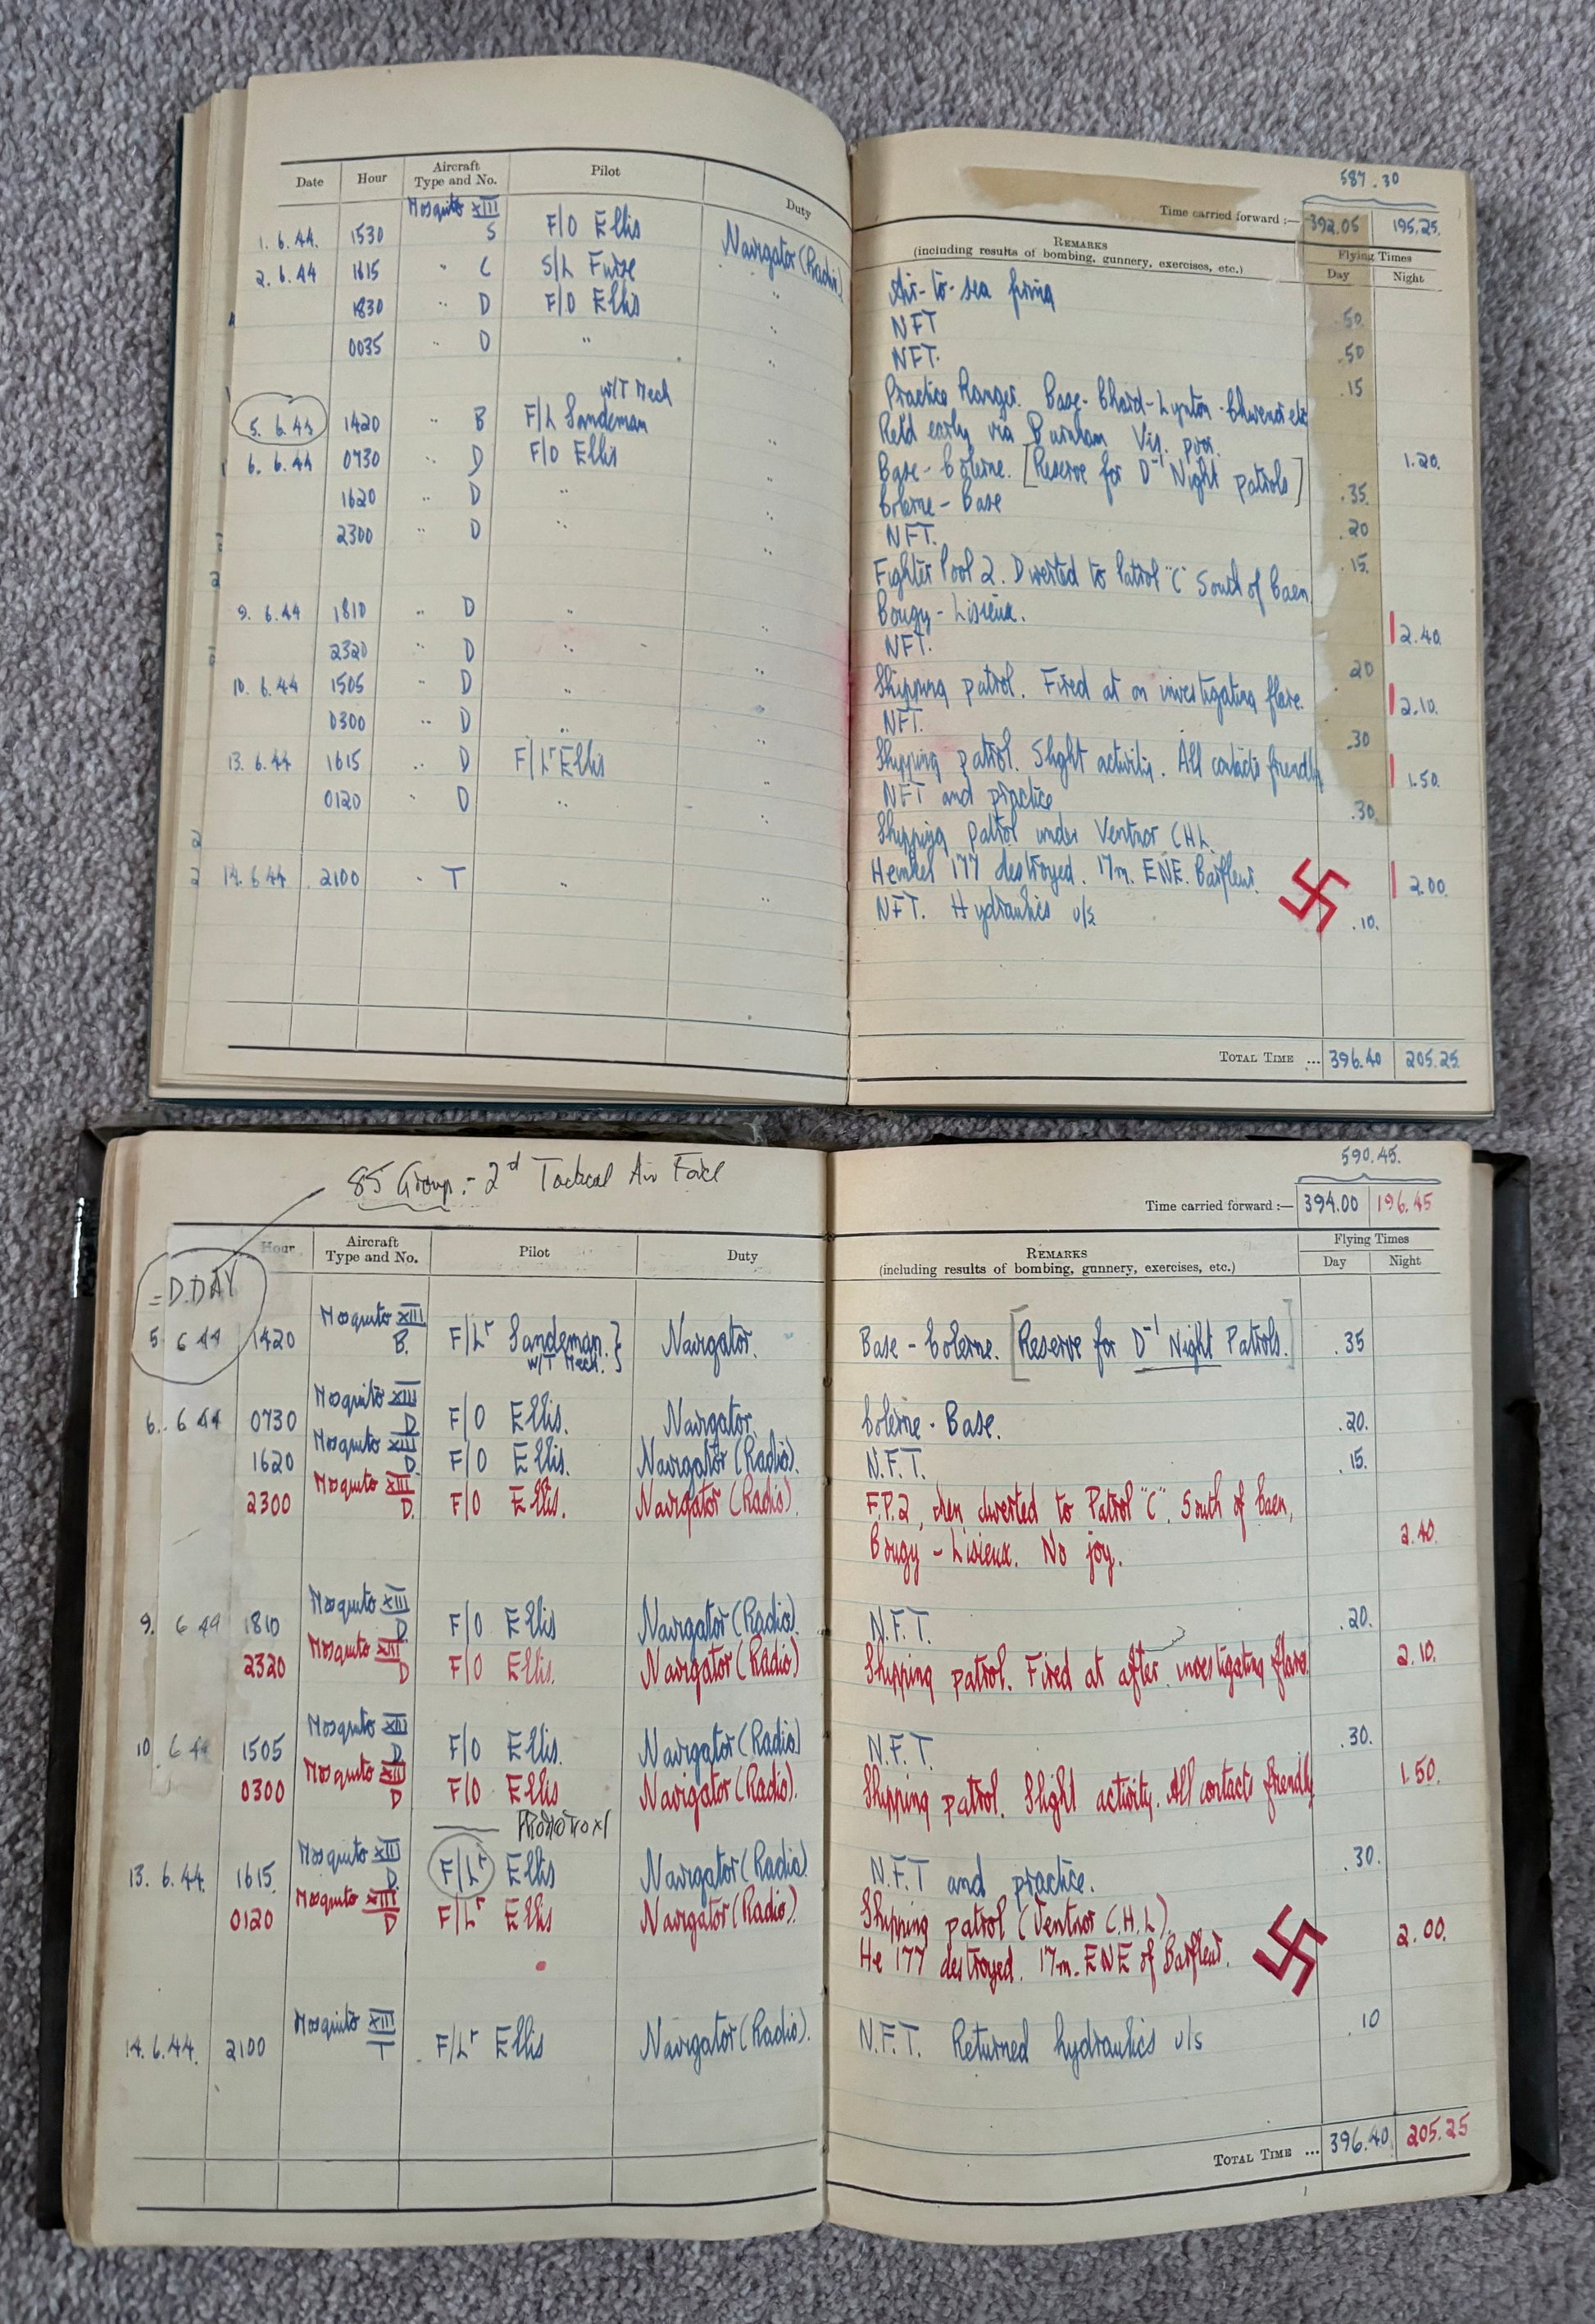 587.30
Time carried forward :— 392.05 195.25
Date Hour Aircraft Type and No. Pilot Duty
REMARKS
(including results of bombing, gunnery, exercises, etc.)
Flying Times
Day Night
Mosquito XIII
1.6.44. 1530 S F/O Ellis Navigator (Radio) Air-to-sea firing .50
2.6.44 1615 " C S/L Furse " NFT .50
1830 " D F/O Ellis " NFT. .15
0035 " D " " Practice Ranger. Base-Chard-Lynton- etc
Ret'd early via Burnham Vis. poor. 1.20.
w/T Mech
5.6.44 1420 " B F/L Sandeman " Base-Colerne. [Reserve for D-1 Night patrols] .35.
6.6.44 0730 " D F/O Ellis " Colerne - Base .20
1620 " D " " NFT. .15.
2300 " D " " Fighter Pool 2. Diverted to Patrol "C" South of Caen,
Bougy - Lisieux. 2.40.
9.6.44 1810 " D " " NFT. 20
2320 " D " " Shipping patrol. Fired at on investigating flare. 2.10.
10.6.44 1505 " D " " NFT. .30
0300 " D " " Shipping patrol. Slight activity. All contacts friendly 1.50.
13.6.44 1615 " D F/Lr Ellis " NFT and practice .30.
0120 " D " " Shipping patrol under Ventnor CHL.
Heinkel 177 destroyed. 17m. ENE. Barfleur. 2.00.
14.6.44 2100 " T " " NFT. Hydraulics u/s .10.
TOTAL TIME ... 396.40 205.25
85 Group :- 2d Tactical Air Force
590.45.
Time carried forward :— 394.00 196.45
Hour Aircraft Type and No. Pilot Duty
REMARKS
(including results of bombing, gunnery, exercises, etc.)
Flying Times
Day Night
= D.DAY
5 6 44 1420 Mosquito XIII B. F/Lr Sandeman. w/T Mech. } Navigator. Base - Colerne. [Reserve for D-1 Night Patrols.] .35
6. 6 44 0730 Mosquito XIII D F/O Ellis. Navigator. Colerne - Base. .20.
1620 Mosquito XIII D. F/O Ellis. Navigator (Radio). N.F.T. .15.
2300 Mosquito XIII D. F/O Ellis. Navigator (Radio). F.P.2, then diverted to Patrol "C". South of Caen,
Bougy - Lisieux. No joy. 2.40.
9. 6 44 1810 Mosquito XIII D. F/O Ellis Navigator (Radio). N.F.T. .20.
2320 Mosquito XIII D F/O Ellis. Navigator (Radio) Shipping patrol. Fired at after investigating flare. 2.10.
10 6 44 1505 Mosquito XIII D F/O Ellis. Navigator (Radio) N.F.T. .30.
0300 Mosquito XIII D F/O Ellis Navigator (Radio). Shipping patrol. Slight activity. All contacts friendly 1.50.
PROMOTION
13.6.44. 1615 Mosquito XIII D. F/Lr Ellis Navigator (Radio) N.F.T and practice. .30.
0120 Mosquito XIII D F/Lr Ellis Navigator (Radio). Shipping patrol (Ventnor C.H.L).
He 177 destroyed. 17m. ENE of Barfleur. 2.00.
14.6.44. 2100 Mosquito XIII T F/Lr Ellis Navigator (Radio). N.F.T. Returned hydraulics u/s .10
TOTAL TIME ... 396.40 205.25